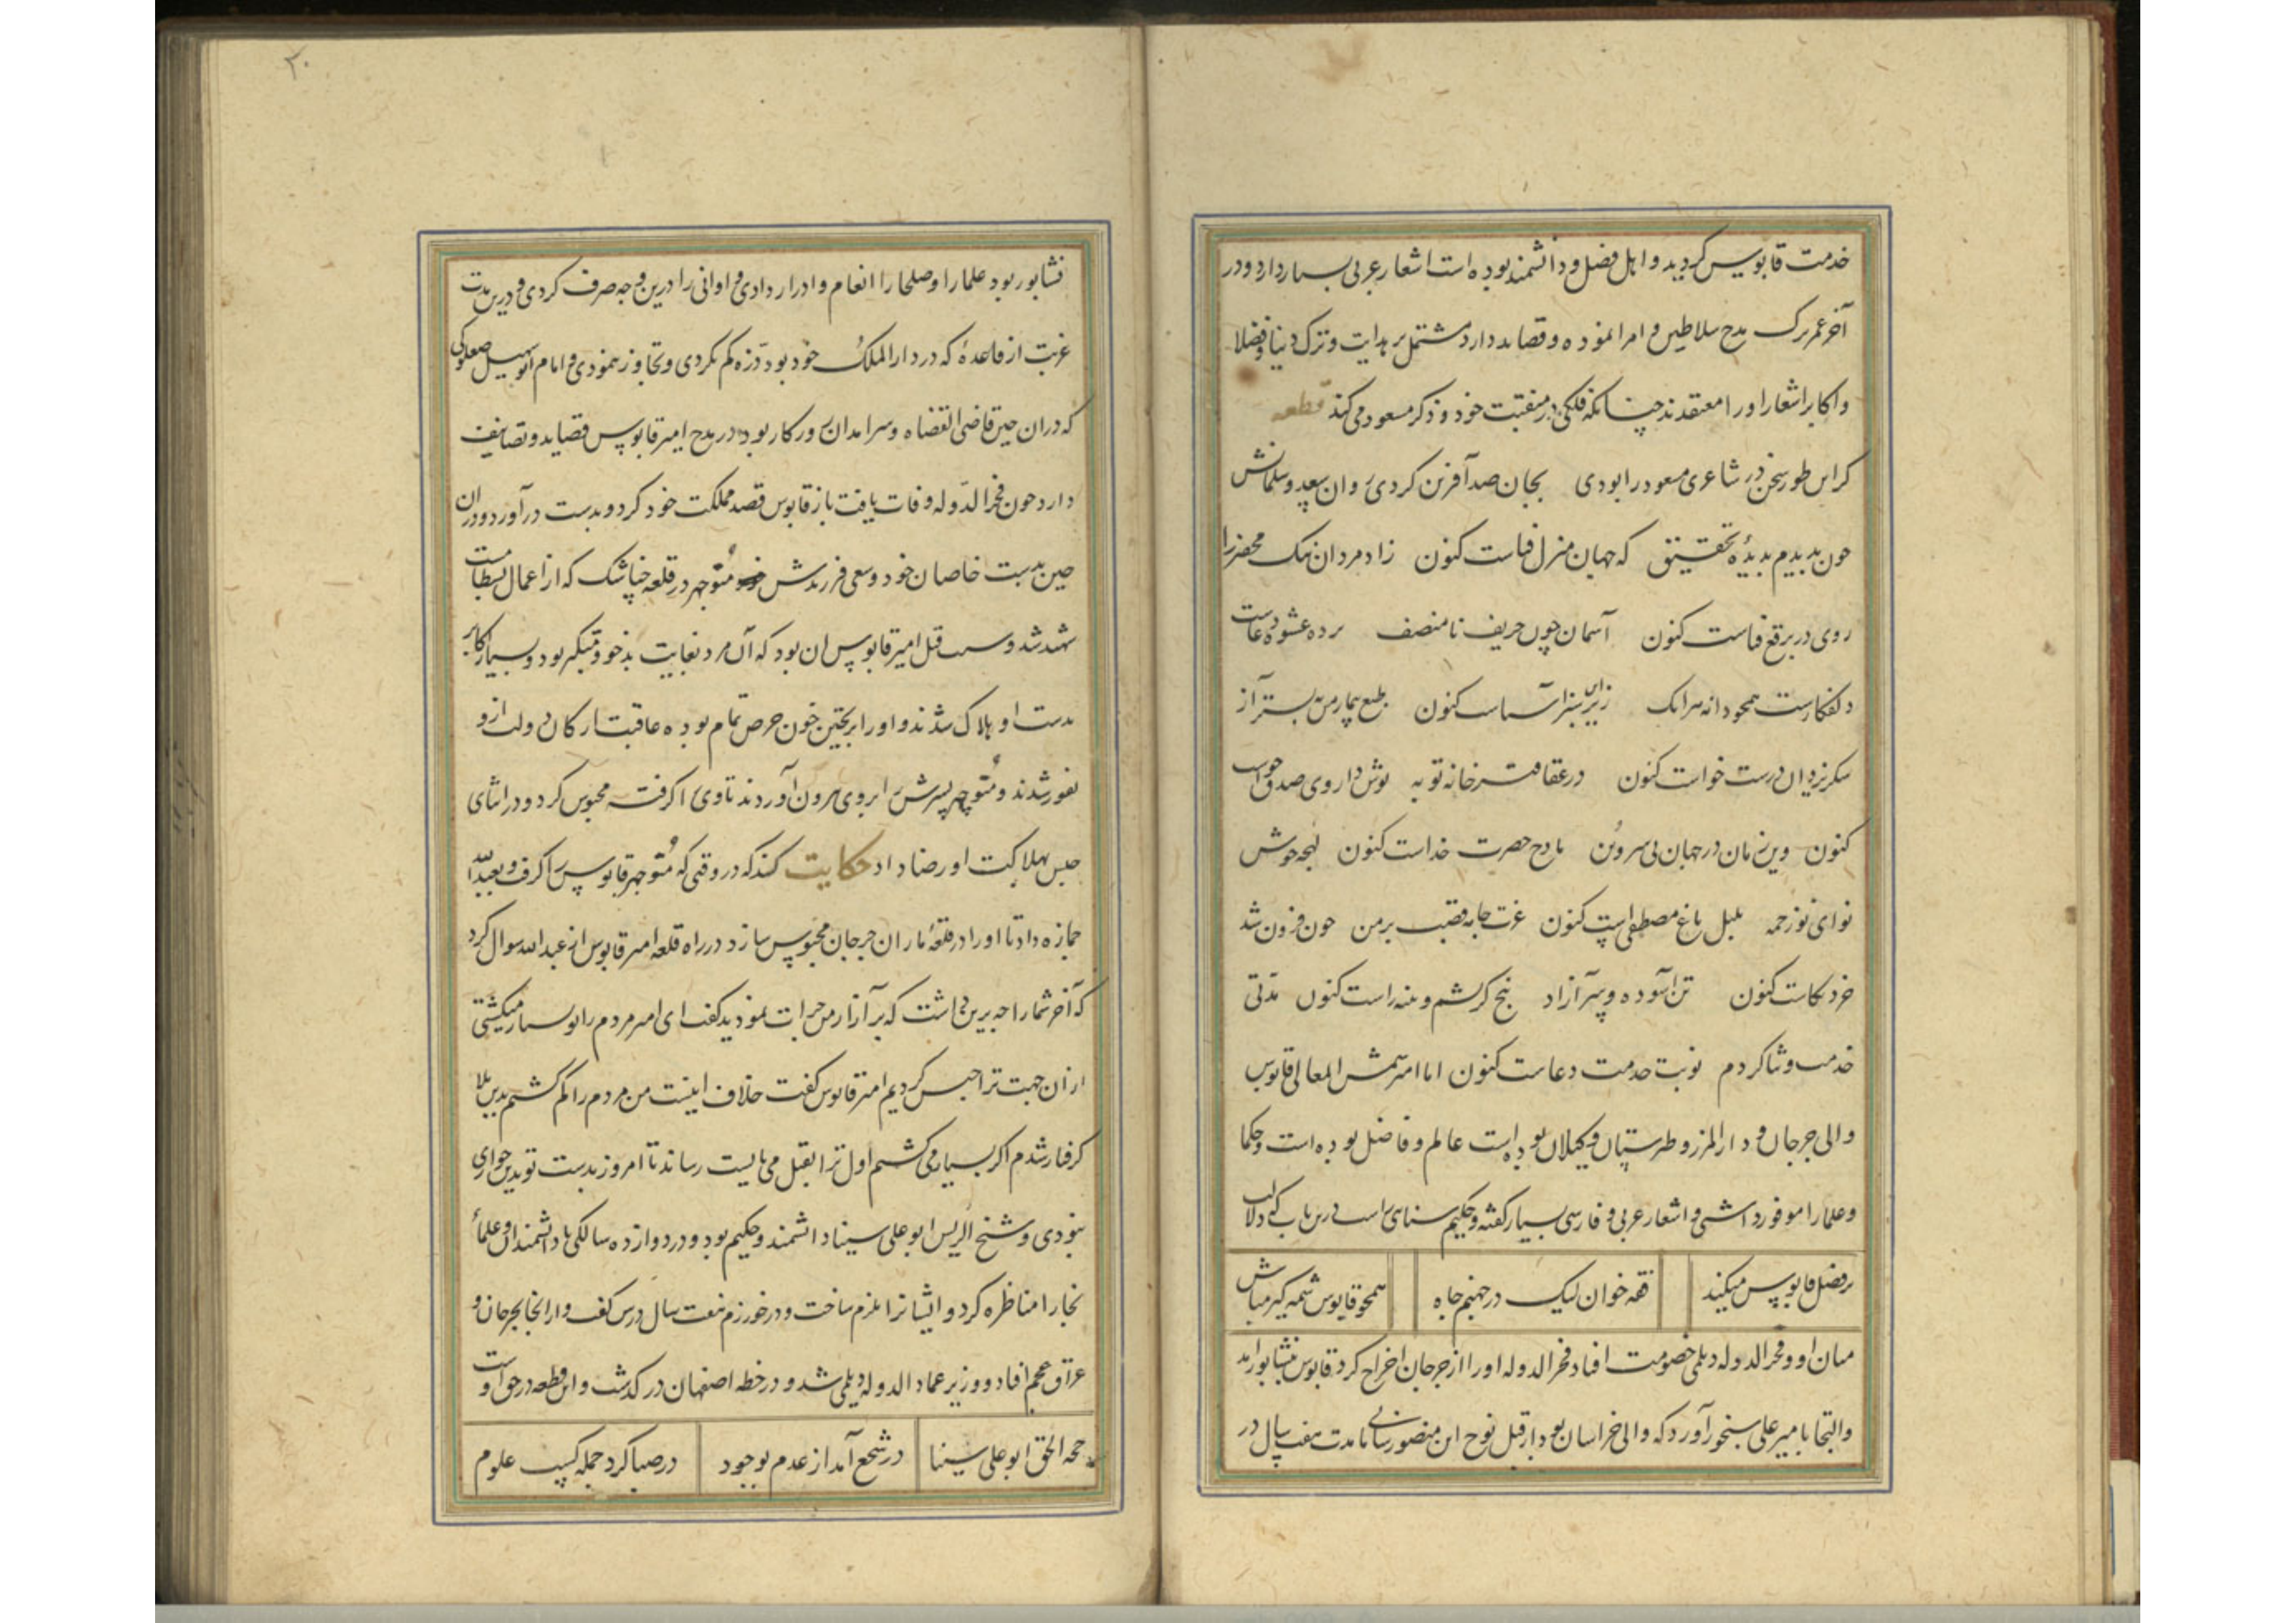 خدمت قابوس کردید و اهل فضل و دانشمند بوده است اشعار عربی بسیار دارد و در
آخر عمر ترک مدح سلاطین و امرا نموده و قصاید دارد مشتمل بر هدایت و ترک دنیا و فضلا
و اکابر اشعار او را معتقدند چنانکه فلکی در منقبت خود و ذکر مسعود می کند قطعه
کر این طور سخن در شاعری مسعود را بودی بجان صد آفرین کردی روان سعد و سلمانش
چون بدیدم بدیدهٔ تحقیق که جهان منزل فناست کنون زاد مردان نیک محضر را
روی در برقع فناست کنون آسمان چون حریف نامنصف برده عشوه دغاست
دلفکارست همچو دانه سرانک زیر این سبز آسیاست کنون طبع بیمار من بستر آز
شکر یزدان درست خواست کنون در عقاقیر خانه توبه نوش داروی صدق خواست
کنون وین زمان در جهان بی سر و بن مادح حضرت خداست کنون لهجه خوش
نوای نوزخمه بلبل باغ مصطفی است کنون عزت جامه قصب بر من چون فزون شد
خرد بکاست کنون تن آسوده و سر آزاد پنج کز پشم و پنبه راست کنون مدتی
خدمت و ثنا کردم نوبت خدمت دعاست کنون اما امیر شمس المعالی قابوس
والی جرجان و دار المرز و طبرستان و کیلان بوده است عالم و فاضل بوده است و حکما
و علما را موفور داشتی و اشعار عربی و فارسی بسیار کفته و حکیم سنایی راست درین باب که دلالت
بر فضل قابوس میکند فقه خوان لیک در جهنم جاه همچو قابوس شمکیر مباش
میان او و فخر الدوله دیلمی خصومت افتاد فخر الدوله او را از جرجان اخراج کرد قابوس بنشابور آمد
و التجا بامیر علی سنجور آورد که والی خراسان بود از قبل نوح ابن منصور سامانی تا مدت هفت سال در
۲۰
نشابور بود علما را و صلحا را انعام و ادرار دادی و اوانی را درین وجه صرف کردی و درین مدت
غربت از قاعدهٔ که در دار الملک خود بود ذره کم نکردی و تجاوز ننمودی و امام ابو سهیل صعلوکی
که در آن حین قاضی القضاه و سرامدان روزکار بود در مدح امیر قابوس قصاید و تصانیف
دارد چون فخر الدوله وفات یافت باز قابوس قصد مملکت خود کرد و بدست درآورد و در آن
حین بدست خاصان خود و سعی فرزندش منوچهر در قلعه خناشک که از اعمال بسطامست
شهید شد و سبب قتل امیر قابوس آن بود که آن مرد بغایت بدخو و متکبر بود و بسیار اکابر
بدست او هلاک شدند و او را بریختن خون حرص تمام بوده عاقبت ارکان دولت ازو
نفور شدند و منوچهر پسرش را بروی بیرون آوردند تا وی را کرفته محبوس کرد و در اثنای
حبس بهلاکت او رضا داد حکایت کنند که در وقتی که منوچهر قابوس را کرفت و بعبدالله
جمازه داد تا او را در قلعهٔ ماران جرجان محبوس سازد در راه قلعه امیر قابوس از عبدالله سوال کرد
که آخر شما را چه برین داشت که بر آزار من جرات نمودید کفت ای امیر مردم را تو بسیار میکشتی
از ان جهت ترا حبس کردیم امیر قابوس کفت خلاف اینست من مردم را کم کشتم بدین بلا
کرفتار شدم اکر بسیار می کشتم اول ترا بقتل می بایست رساند تا امروز بدست تو بدین خواری
نبودی و شیخ الریس ابو علی سینا دانشمند و حکیم بود و در دوازده سالکی با دانشمندان و علمای
بخارا مناظره کرد و ایشانرا ملزم ساخت و در خورزم هفت سال درس کفت و از انجا بجرجان و
عراق عجم افتاد و وزیر عماد الدوله دیلمی شد و در خطه اصفهان در کذشت و این قطعه در حق اوست
حجه الحق ابو علی سینا در شجع آمد از عدم بوجود در صبا کرد جمله کسب علوم